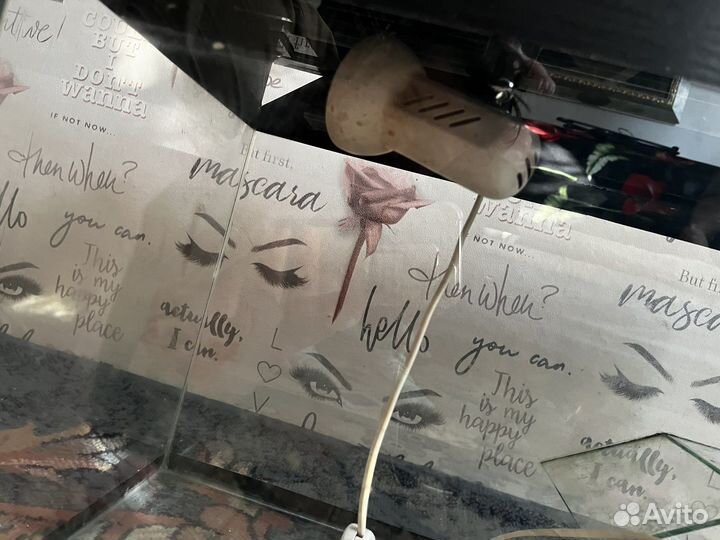 COULD
BUT
I
DON'T
wanna
IF NOT NOW...
then when?
you can.
This
is my
happy
place
But first,
mascara
actually,
I can.
L
V
hello
wanna
NOT NOW...
then when?
you can.
This
is my
happy
place
But fi
masca
actually,
I can.
Avito